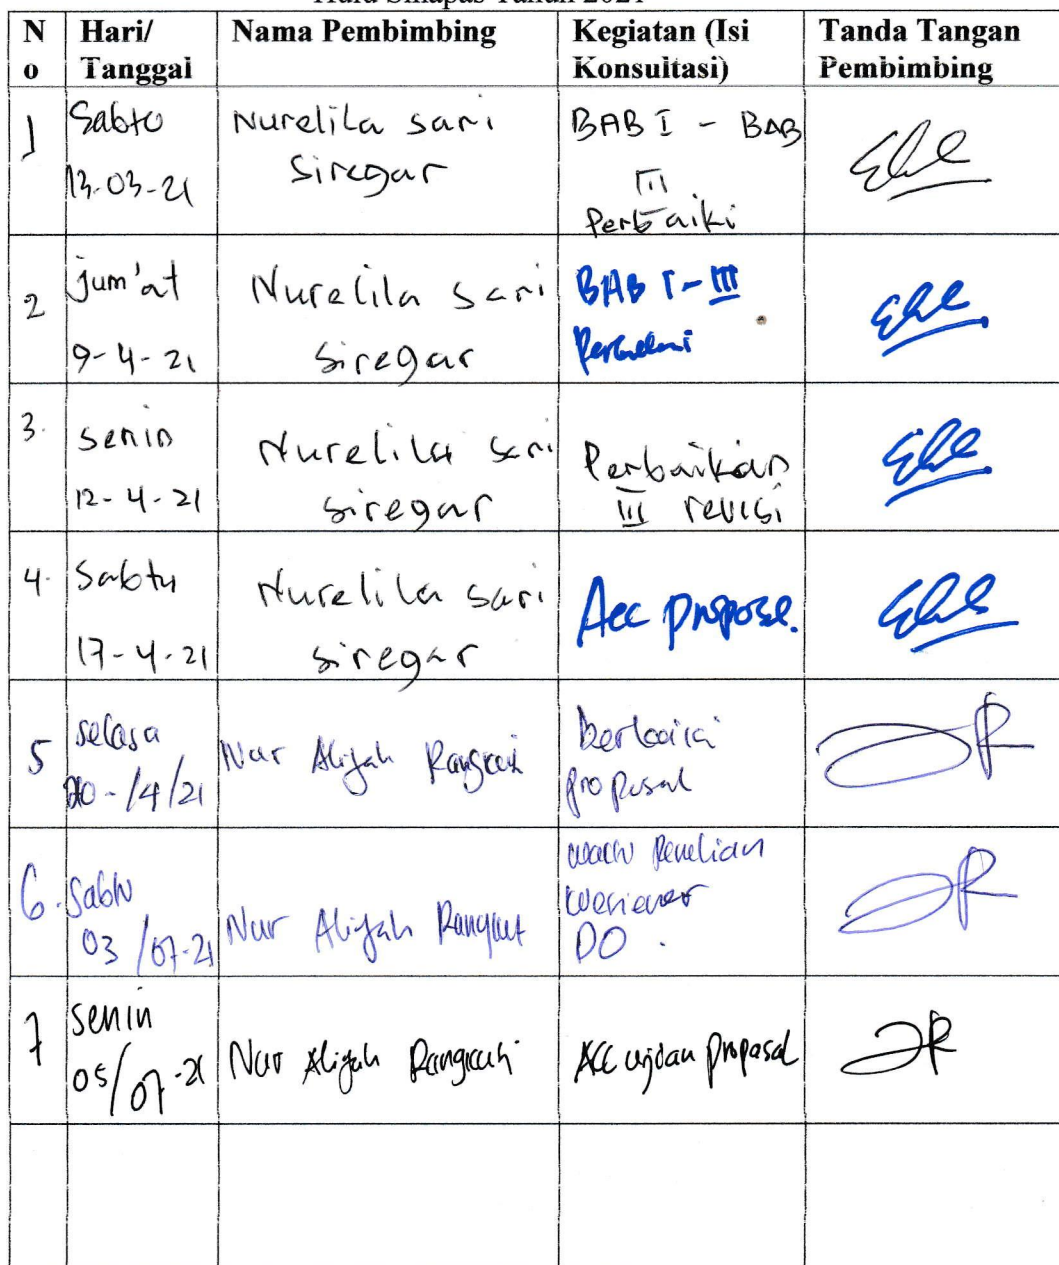 Hulu Sihapas Tahun 2021
N
o
Hari/
Tanggal
Nama Pembimbing
Kegiatan (Isi
Konsultasi)
Tanda Tangan
Pembimbing
1
Sabtu
13-03-21
Nurelila sari
Siregar
BAB I - BAB
III
Perbaiki
2
jum'at
9-4-21
Nurelila sari
siregar
BAB I - III
3.
senin
12-4-21
Nurelila sari
siregar
Perbaikan
III revisi
4.
Sabtu
17-4-21
Nurelila sari
siregar
Acc proposal.
5
selasa
20-/4/21
Nur Aliyah Rangkuti
proposal
6.
Sabtu
03/07-21
Nur Aliyah Rangkuti
DO.
7
senin
05/07-21
Nur Aliyah Rangkuti
Acc ujian proposal